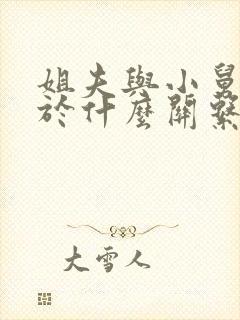 姐夫與小舅
於什麼關繫
大雪人